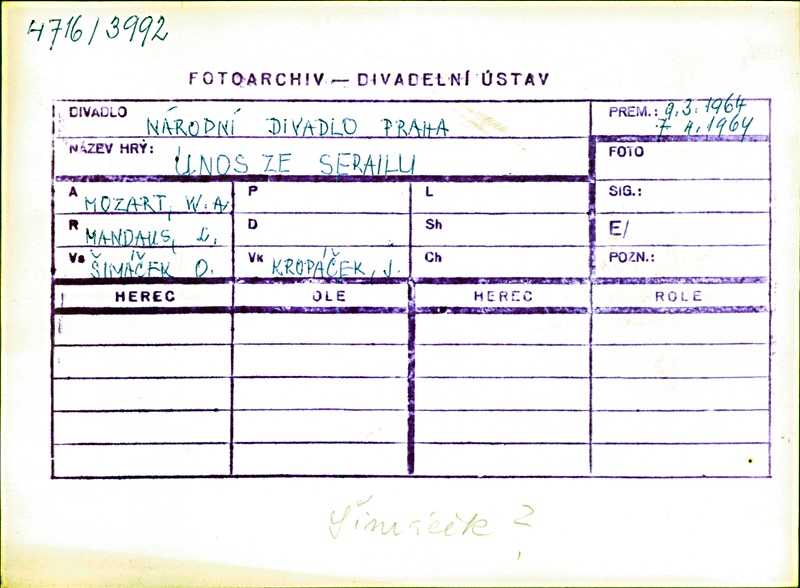 4716/3992
FOTOARCHIV — DIVADELNÍ ÚSTAV
DIVADLO NÁRODNÍ DIVADLO PRAHA
PREM.: 9.3.1964
7 4.1964
NÁZEV HRÝ: ÚNOS ZE SERAILU
FOTO
A MOZART, W.A.
P
L
SIG.:
R MANDAUS, L.
D
Sh
E/
Vs ŠIMÁČEK O.
Vk KROPÁČEK, J.
Ch
POZN.:
HEREC OLE HEREC ROLE
Šimáček ?